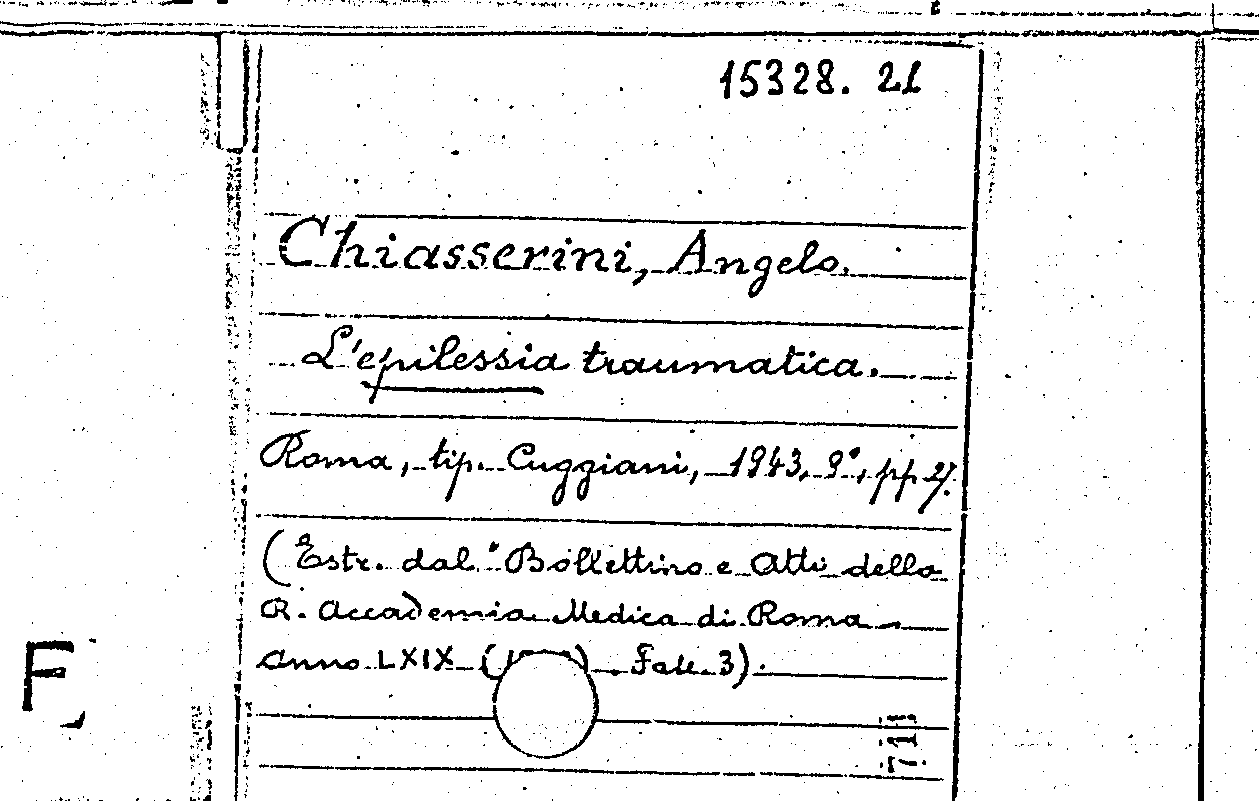 15328. 21
Chiasserini, Angelo.
L'epilessia traumatica.
Roma, tip. Cuggiani, 1943, 8°, pp. 27.
(Estr. dal "Bollettino e Atti della
R. Accademia Medica di Roma -
Anno LXIX ( ) - Fasc. 3).
F